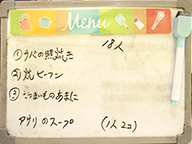 Menu
18人
①サバの照焼き
②焼ビーフン
③さつまいものあまに
アサリのスープ (1人2コ)